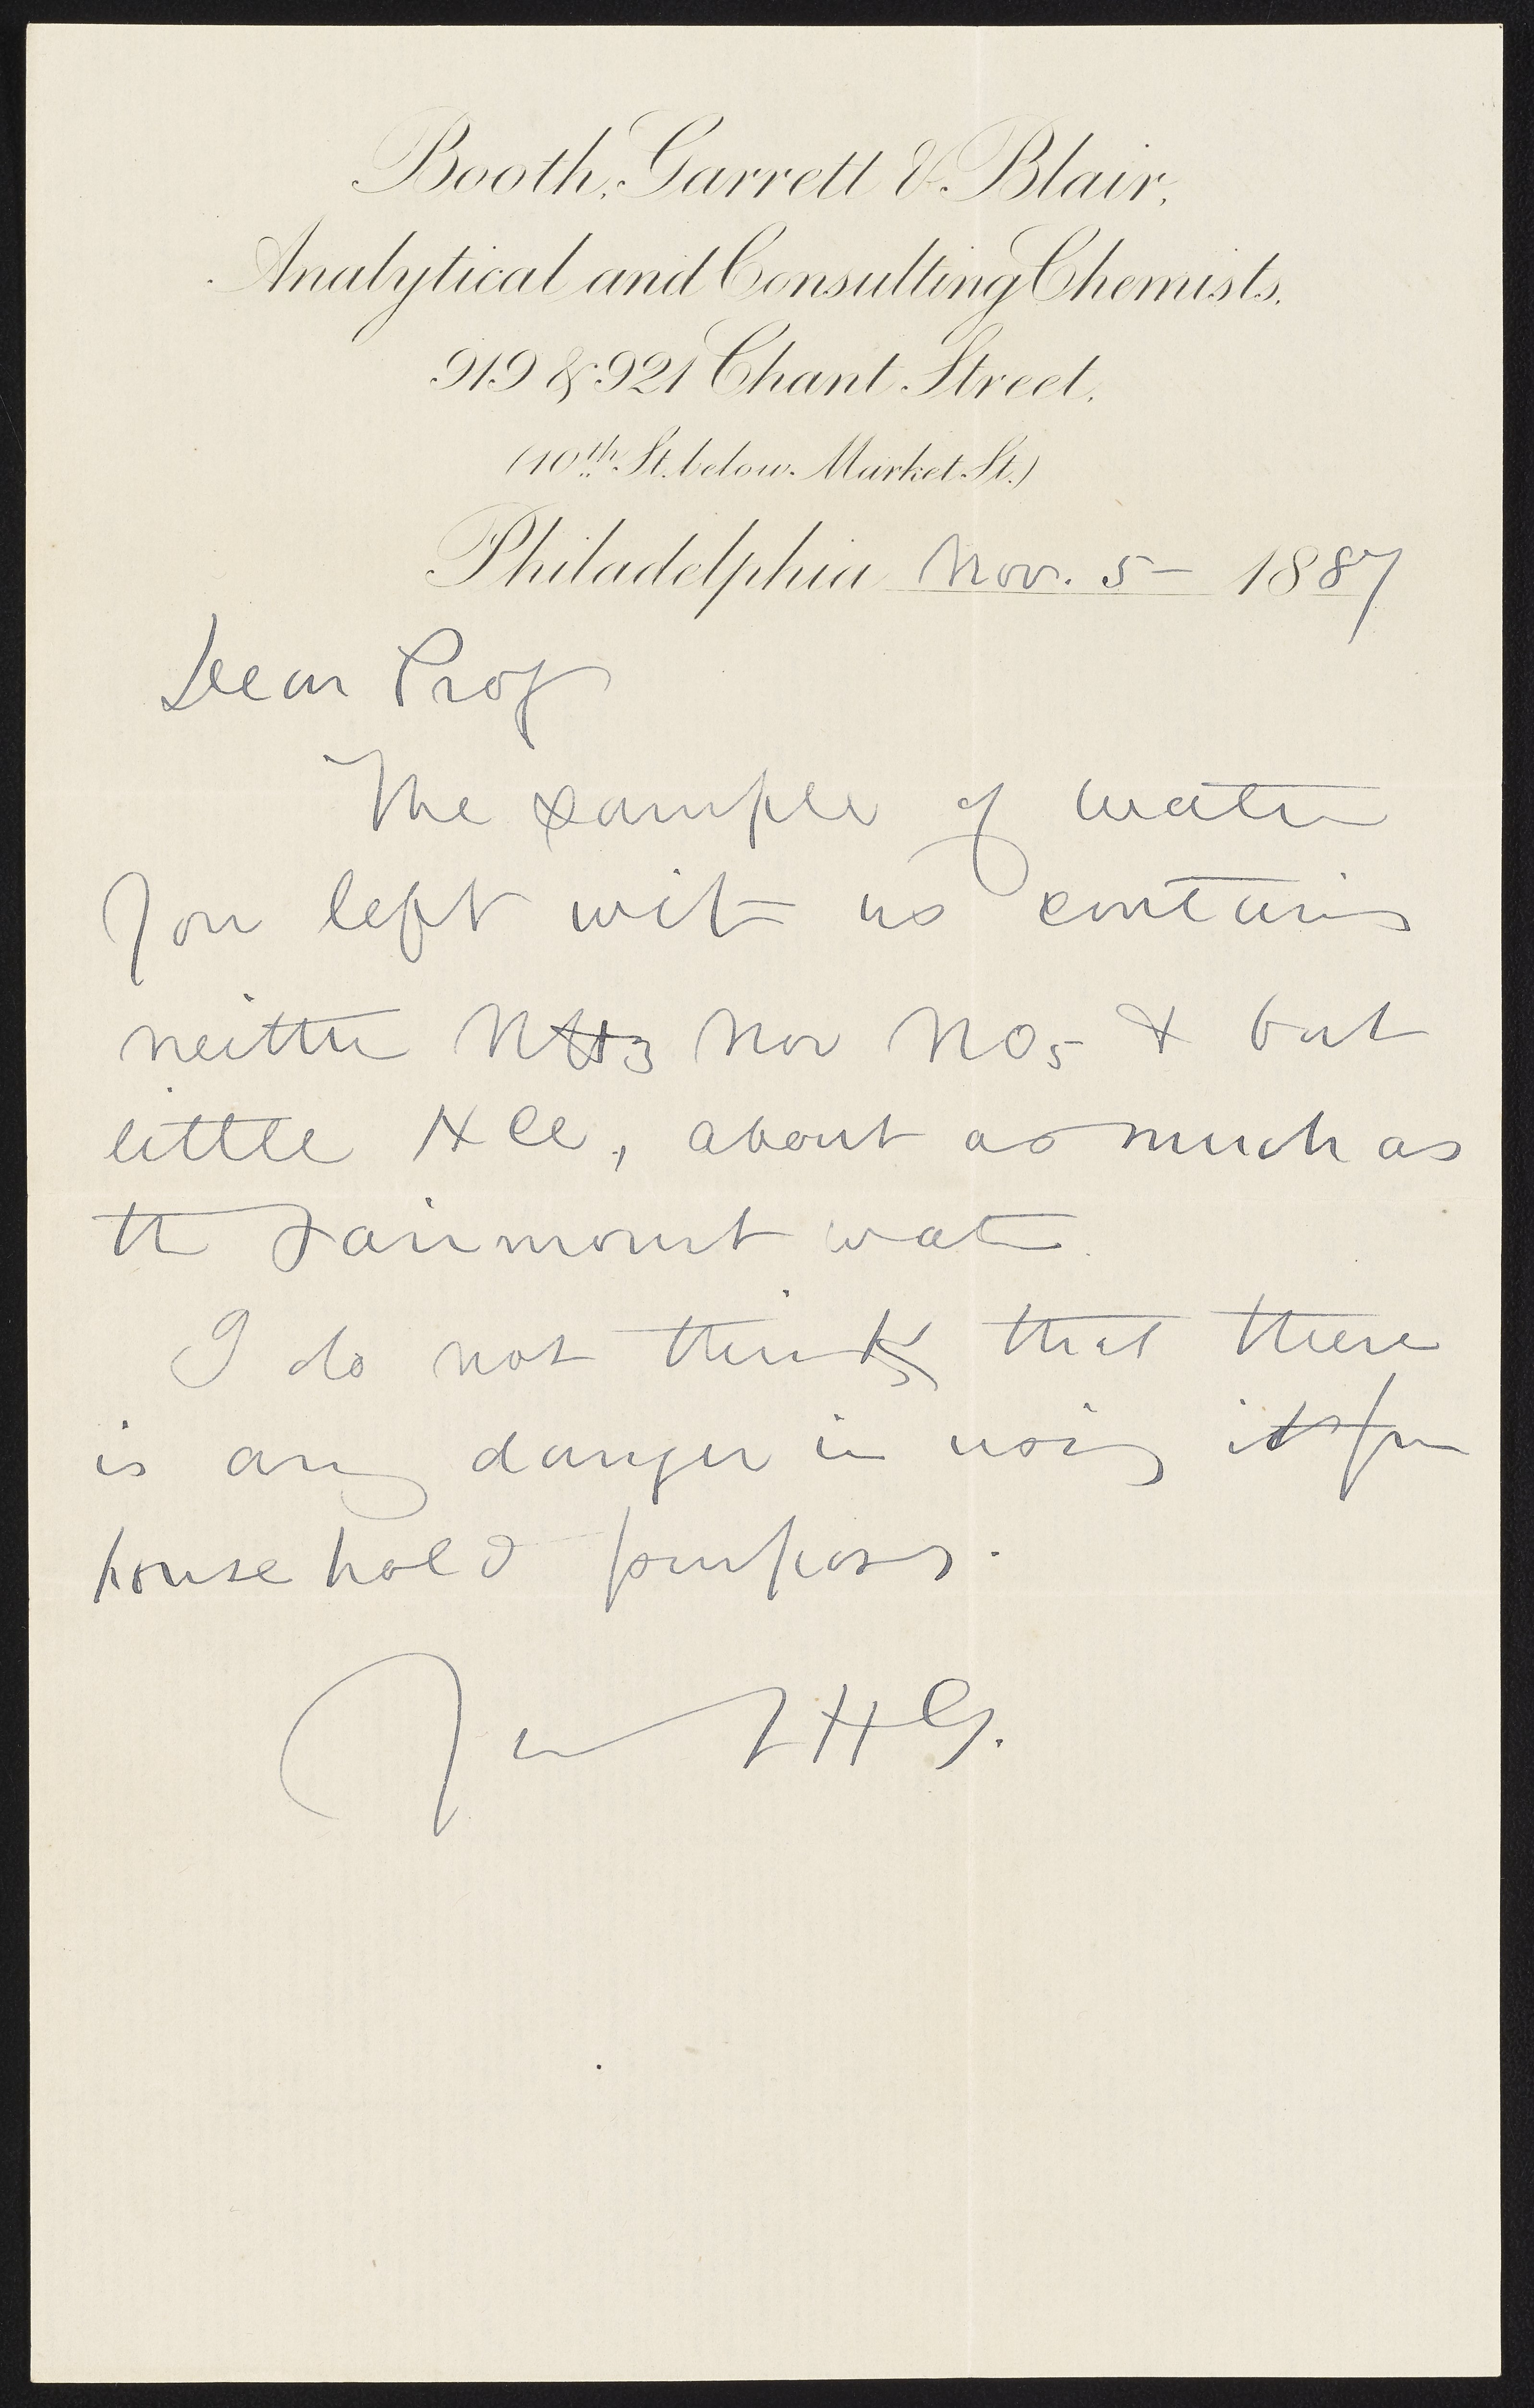 Booth, Garrett & Blair,
Analytical and Consulting Chemists.
919 & 921 Chant Street.
(10th St. below Market St.)
Philadelphia Nov. 5 - 1887
Dear Prof
The sample of water
you left with us contains
neither NH3 nor NO5 & but
little HCl, about as much as
the Fairmount water.
I do not think that there
is any danger in using it for
household purposes.
THG.